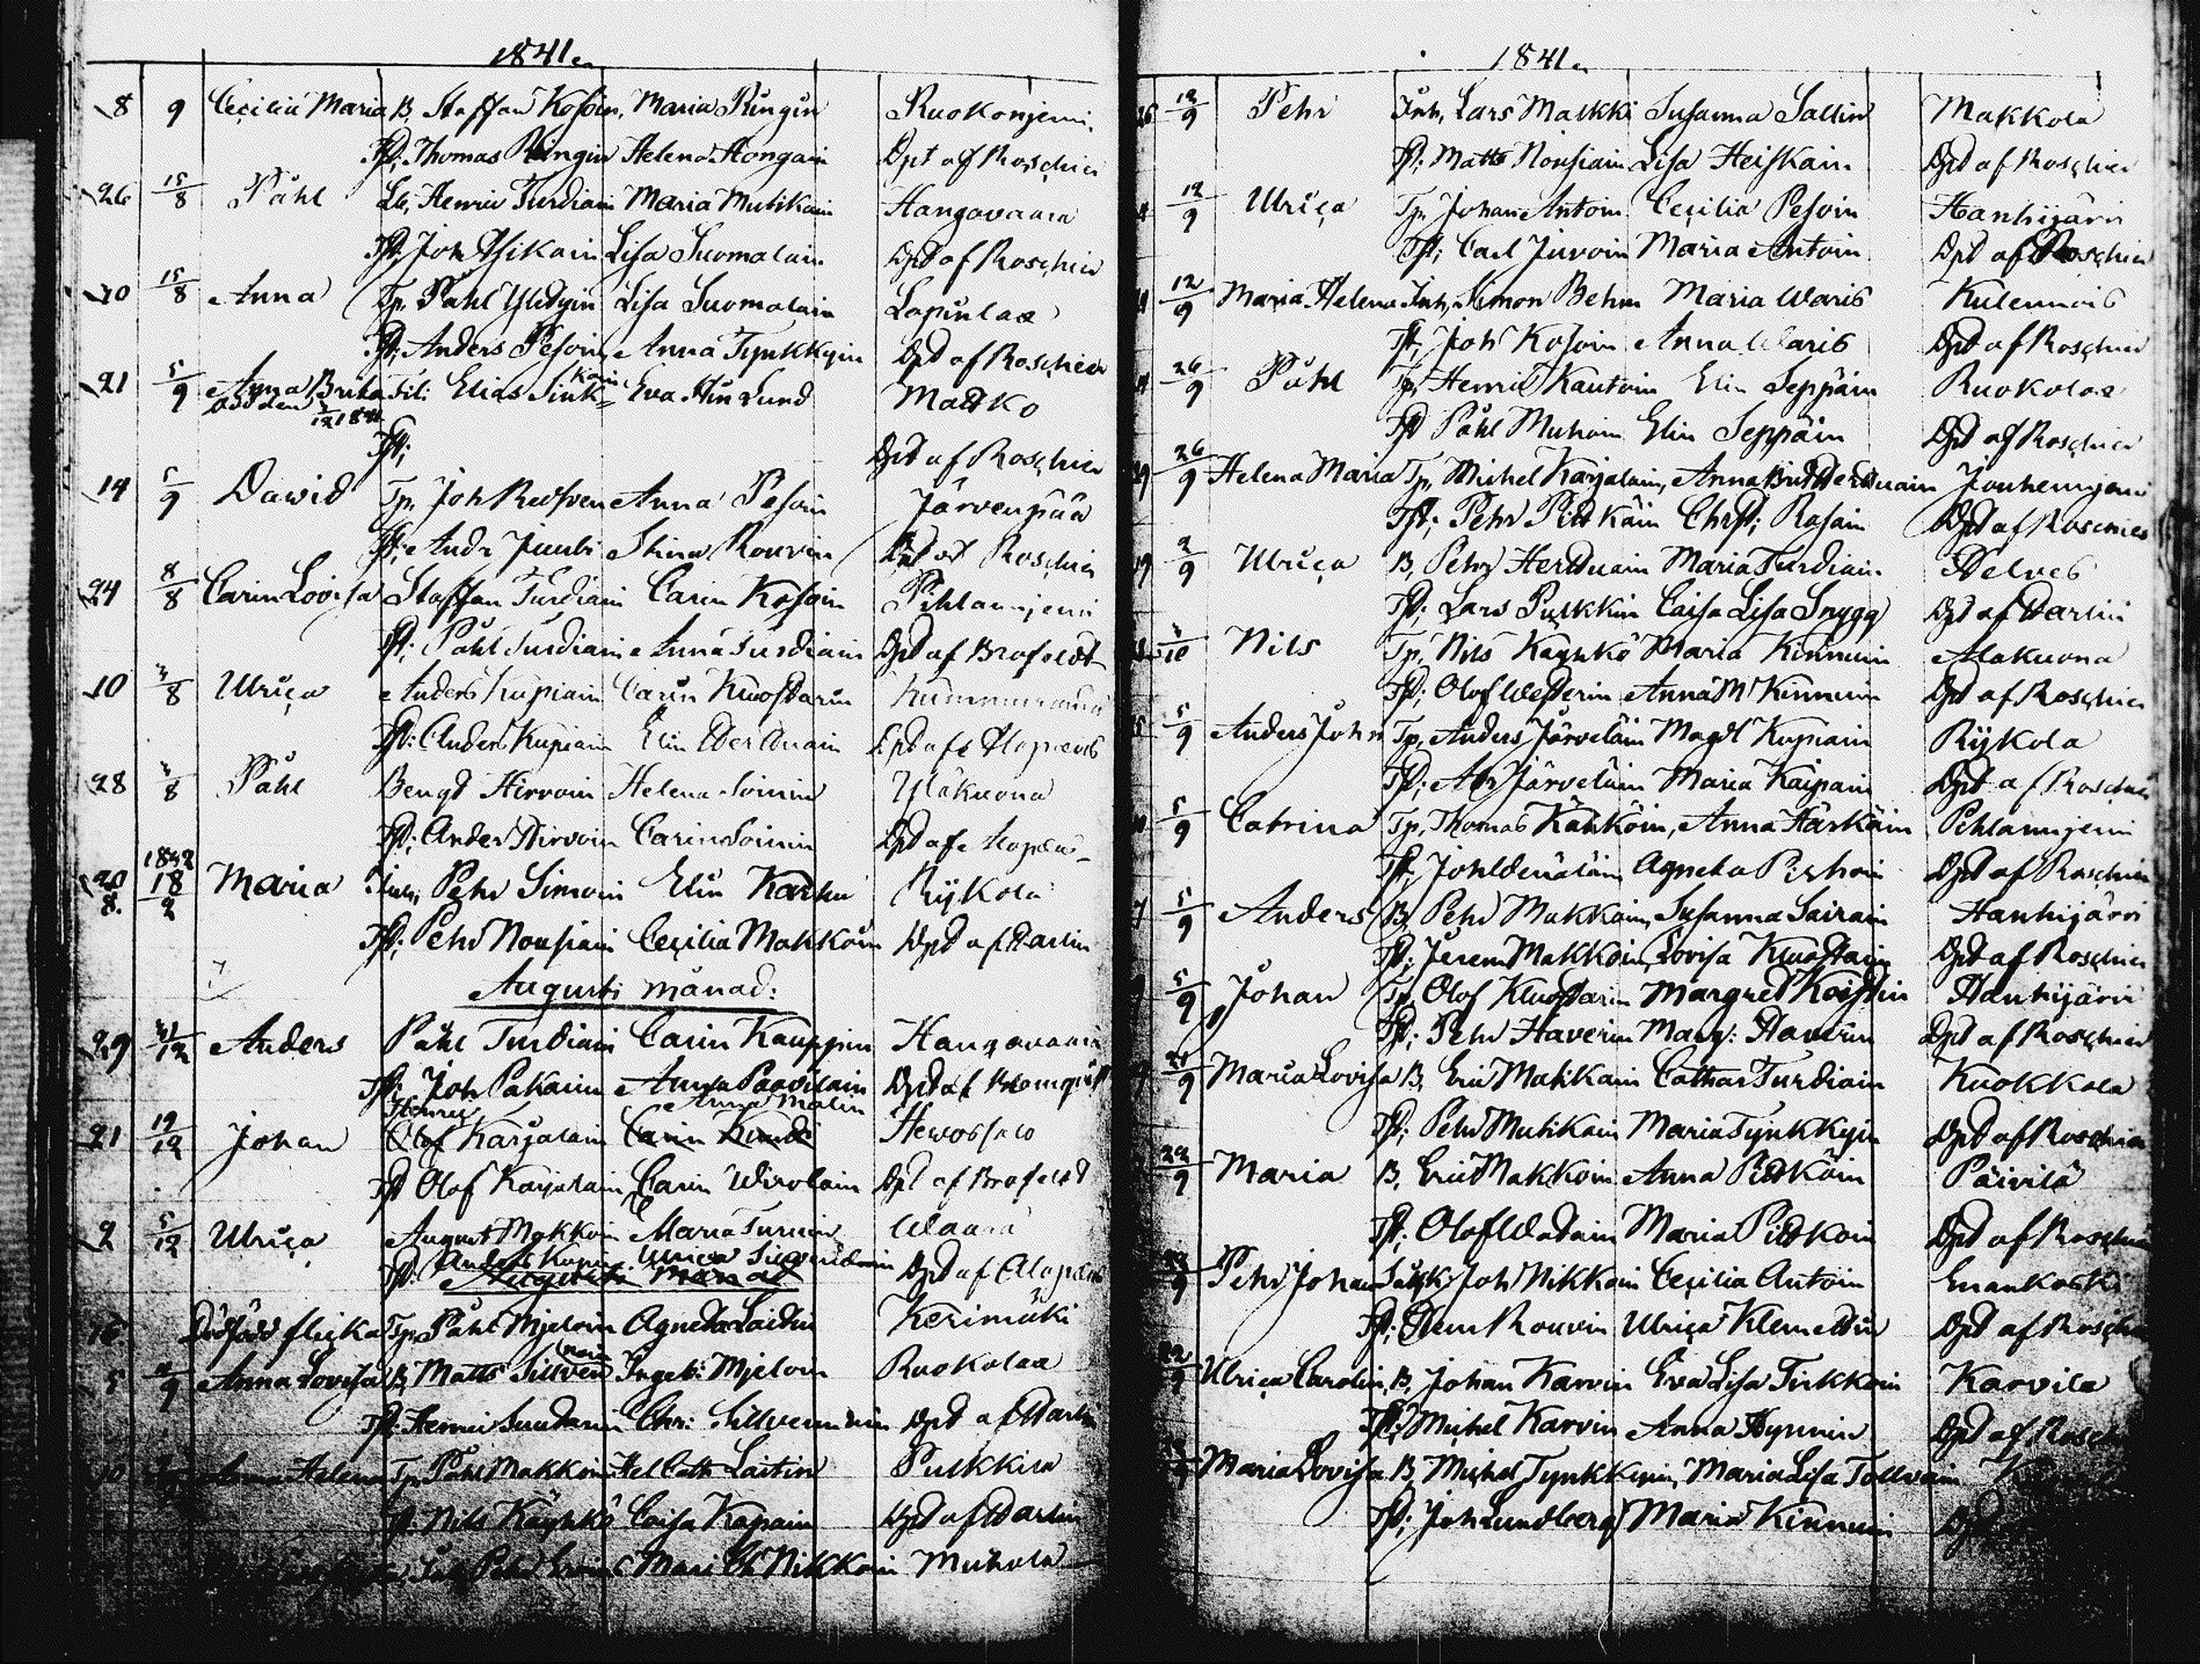 1841
8 9 Ceçilia Maria B, Staffan Kosoin, Maria Ringin Ruokonjemi
Tst; Thomas Ringin Helena Hongain Dpt af Rosçhier
26 15/8 Påhl Henric Turdiain Maria Mutikain Hangovaara
Tst; Joh Lisa Suomalain Dpt af Rosçhier
20 15/8 Anna Tp, Påhl Lisa Suomalain Lapinlax
Tst; Anders Pesoin, Anna Tynkkyin Dpt af Rosçhier
21 5/9 Anna Brita Elias Sink= kain Eva Lund Matko
1841
Tst; Dpt af Rosçhier
14 5/9 Dawid Tp, Joh Anna Pesoin Järvenpää
Tst; Andr Juuti Stina Rouvin Dpt af Rosçhier
24 8/8 Carin Lovisa Staffan Turdiain Carin Kosoin Pihlannjemi
Tst; Påhl Turdiain Anna Turdiain Dpt af Brofeldt
10 /8 Ulriça Anders Kupiain Carin Kuostarin
Tst: Anders Kupiain Elin Dpt af Alopæus
28 /8 Påhl Bengt Hirvoin Helena Soinin Yläkuona
Tst; Ander Hirvoin Carin Soinin Dpt af Alopæus
20/8 1842 18/2 Maria Inh, Pehr Simoin Elin Karhu Rijkola
Tst; Pehr Nousiain Ceçilia Makkoin Dpt af Parlin
Augusti månad:
29 /12 Anders Påhl Turdiain Carin Kauppin Hangovaara
Tst; Joh Pakarin Anna Paavilain Dpt af Blomqvist
Henric Anna Malin
21 19/12 Johan Olof Karjalain Carin Hewossalo
Tst Olof Karjalain Carin Wirolain Dpt af Brofeldt
2 5/12 Ulriça August Makkoin Maria Turuin Waara
Tst: Anders Kupi Ulrica Dpt af Alopæus
Augusti månad
16 Dödfödd flicka Tp, Påhl Mjeloin Agneta Laitin Kerimäki
5 /9 Anna Lovisa B, Matts Sillven noin Ingeb: Mjeloin Ruokolax
Tst: Henric Chri: Dpt af Parlin
10 Anna Helena Tp, Påhl Makkoin Hel Cath Laitin Pulkkila
Tst. Nils Käyhkö Caisa Kopain Dpt af Parlin
Pehr Mari Nikkain Muhola
1841
26 12/9 Pehr Inh, Lars Malkki Susanna Sallin Makkola
Tst; Matts Nousiain Lisa Heiskain Dpt af Rosçhier
12/9 Ulriça Tp, Johan Antoin Ceçilia Pesoin Hanhijärvi
Tst; Carl Juvoin Maria Antoin Dpt af Rosçhier
12/9 Maria Helena Inh, Simon Behm Maria Waris Kulennois
Tst; Joh Kosoin Anna Waris Dpt af Rosçhier
26/9 Påhl Tp, Henric Kautoin Elin Seppäin Ruokolax
Tst Påhl Muhoin Elin Seppäin Dpt af Rosçhier
26/9 Helena Maria Tp, Michel Karjalain, Anna Brit Jouhennjemi
Tst; Pehr Pitkäin Christ; Rosain Dpt af Rosçhier
2/9 Ulriça B, Pehr Maria Turdiain Pelves
Tst; Lars Pulkkin Caisa Lisa Snygg Dpt af Parlin
/10 Nils Tp, Nils Käyhkö Maria Kinnuin Alakuona
Tst; Olof Westerin Anna M Kinnuin Dpt af Rosçhier
5/9 Anders Johan Tp, Anders Järveläin Magdl Kupiain Rijkola
Tst; Abr Järveläin Maria Kaipain Dpt af Rosçhier
5/9 Catrina Tp, Thomas Kähköin, Anna Härkäin Pihlannjemi
Tst; Joh Agneta Dpt af Rosçhier
7 5/9 Anders B, Pehr Makkoin, Susanna Sairain Hanhijärvi
Tst; Jerem Makkoin, Lovisa Kuostain Dpt af Rosçhier
5/9 Johan Tp, Olof Kuostarin Margret Koistin Hanhijärvi
Tst; Pehr Haverin Marg: Haverin Dpt af Rosçhier
/9 Maria Lovisa B, Eric Mutikain Cathar Turdiain Kuokkola
Tst; Pehr Mutikain Maria Tynkkyin Dpt af Rosçhier
22/9 Maria B, Eric Makkoin Anna Pitkäin Päivilä
Tst; Olof Watain Maria Pitkäin Dpt af Rosçhier
/9 Pehr Johan Joh Nikkain Ceçilia Antoin Enankoski
Tst; Clem Rouvin Ulriça Klemettin Dpt af Rosçhier
22/9 Ulriça Carolin, B, Johan Karvin Eva Lisa Tirkkoin Karvila
Tst; Miçhel Karvin Anna Hynnin Dpt af Rosch
Maria Lovisa B, Miçhel Tynkkyin, Maria Lisa Tollvain
Tst; Joh Lundberg Maria Kinnuin Dpt